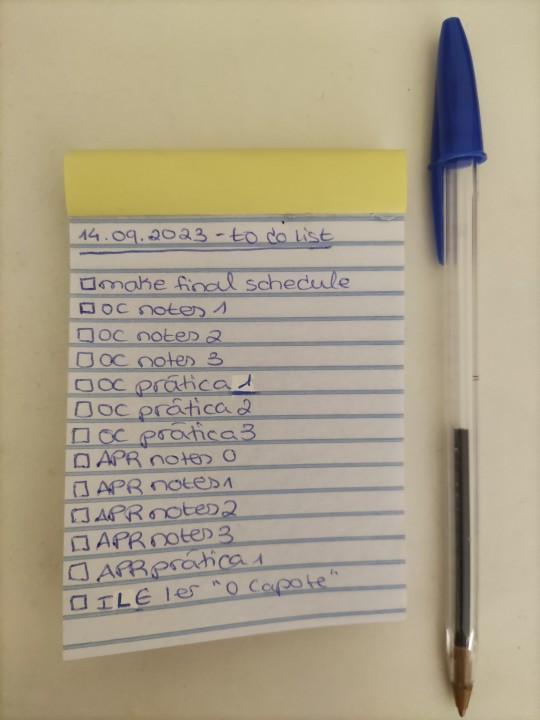 14.09.2023 - to do list
make final schedule
OC notes 1
OC notes 2
OC notes 3
OC prática 1
OC prática 2
OC prática 3
APR notes 0
APR notes 1
APR notes 2
APR notes 3
APR prática 1
ILE ler "O Capote"